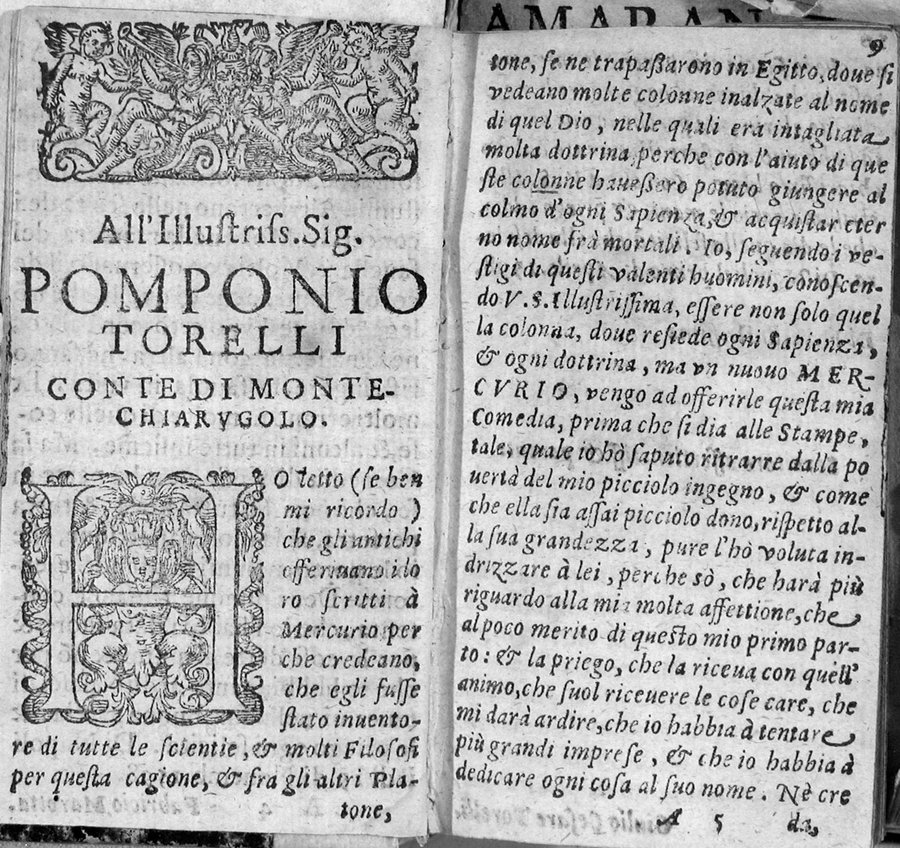 All'Illustriss. Sig.
POMPONIO
TORELLI
CONTE DI MONTE-
CHIARVGOLO.
HO letto (se ben
mi ricordo)
che gli antichi
offerivano i lo
ro scritti à
Mercurio, per
che credeano,
che egli fusse
stato inuento-
re di tutte le scientie, & molti Filosofi
per questa cagione, & fra gli altri Pla-
tone,
AMARAN
9
tone, se ne trapaßarono in Egitto, doue si
vedeano molte colonne inalzate al nome
di quel Dio, nelle quali era intagliata
molta dottrina, perche con l'aiuto di que
ste colonne haueßero potuto giungere al
colmo d'ogni Sapienza, & acquistar eter
no nome frà mortali. Io, seguendo i ve-
stigi di questi valenti huomini, conoscen-
do V. S. Illustrissima, essere non solo quel
la colonna, doue resiede ogni Sapienza,
& ogni dottrina, ma vn nuouo MER-
CVRIO, vengo ad offerirle questa mia
Comedia, prima che si dia alle Stampe,
tale, quale io hò saputo ritrarre dalla po
uertà del mio picciolo ingegno, & come
che ella sia assai picciolo dono, rispetto al-
la sua grandezza, pure l'hò voluta in-
drizzare à lei, perche sò, che harà più
riguardo alla mia molta affettione, che
al poco merito di questo mio primo par-
to: & la priego, che la riceua con quell'
animo, che suol riceuere le cose care, che
mi darà ardire, che io habbia à tentare
più grandi imprese, & che io habbia à
dedicare ogni cosa al suo nome. Nè cre
A 5 da,